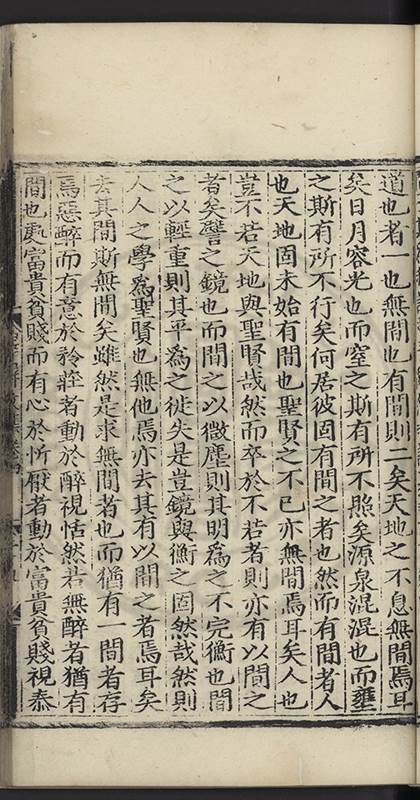 道也者一也無間也有間則二矣天地之不息無間焉耳
矣日月容光也而窒之斯有所不照矣源泉混混也而壅
之斯有所不行矣何居彼固有間之者也然而有間者人
也天地固未始有間也聖賢之不已亦無間焉耳矣人也
豈不若天地與聖賢哉然而卒於不若者則亦有以間之
者矣譬之鏡也而間之以微塵則其明為之不完衡也間
之以輕重則其平為之徙失是豈鏡與衡之固然哉然則
人人之學為聖賢也無他焉亦去其有以間之者焉耳矣
去其間斯無間矣雖然是求無間者也而猶有一間者存
焉惡醉而有意於矜莊者動於醉視恬然若無醉者猶有
間也處富貴貧賤而有心於忻厭者動於富貴貧賤視泰